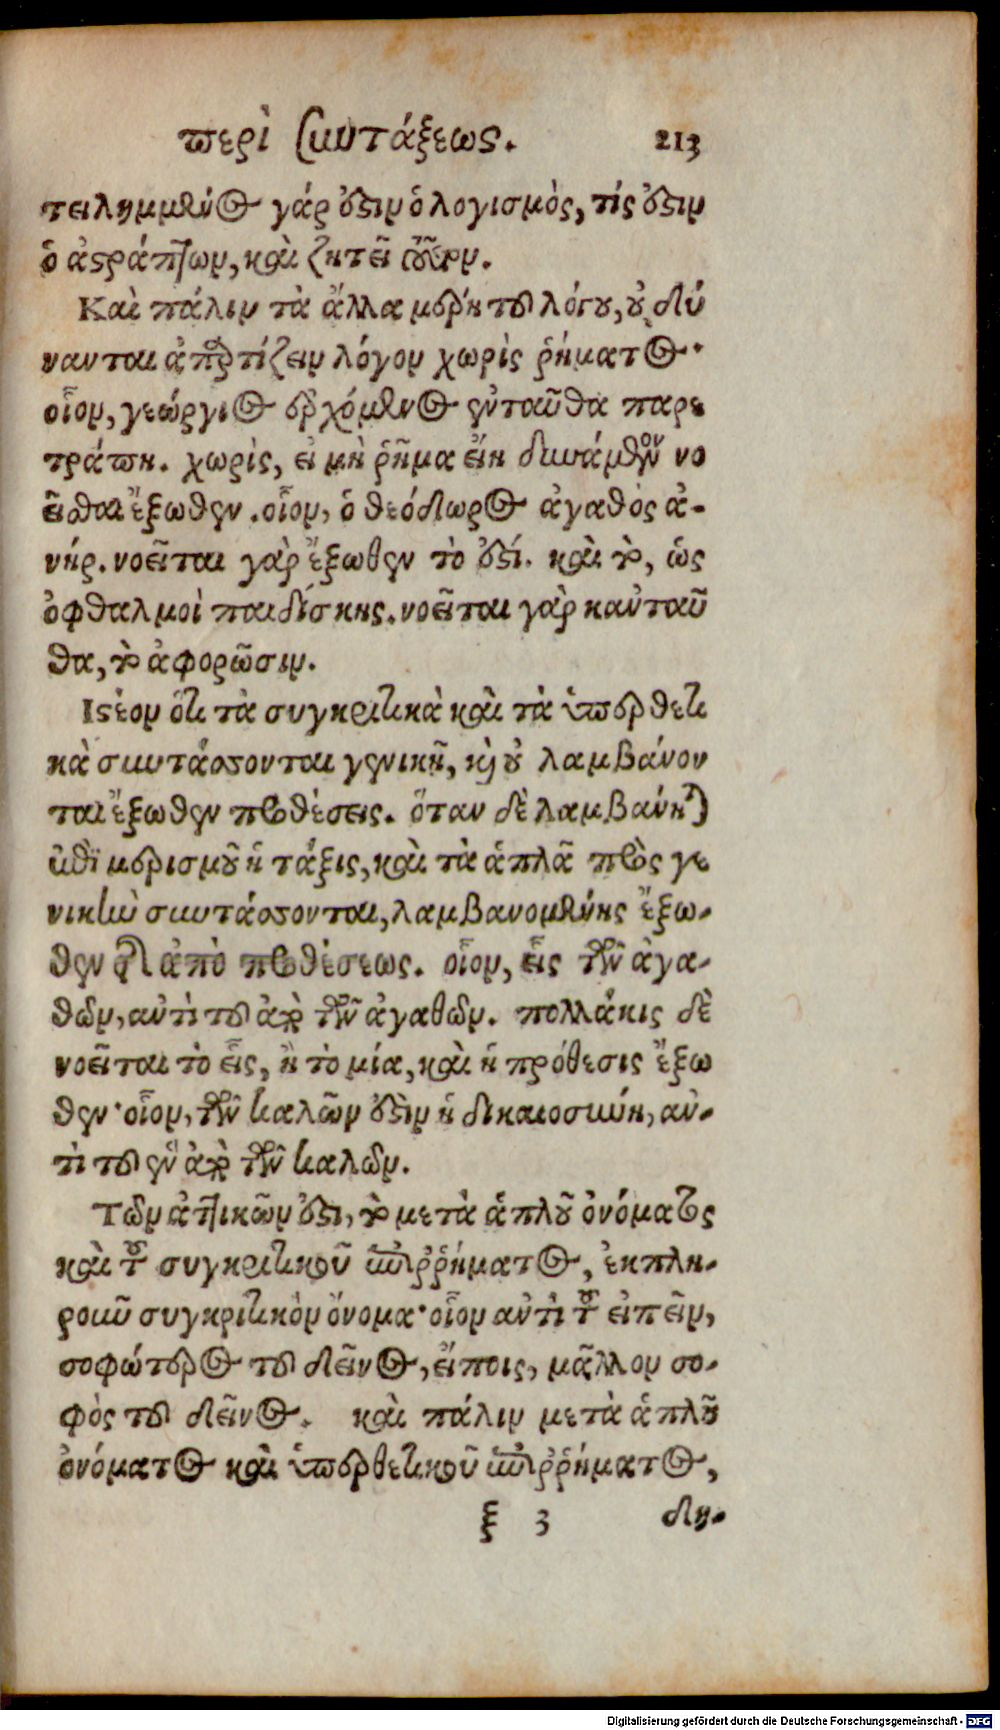 περὶ συντάξεως. 213
τειλημμένος γάρ ἐστιν ὁ λογισμὸς, τίς ἐστιν
ὁ ἀστράπτων, καὶ ζητεῖ
Καὶ πάλιν τὰ ἄλλα μέρη τοῦ λόγου, οὐ δύ
νανται ἀπαρτίζειν λόγον χωρὶς ῥήματος·
οἷον, γεώργιος ἐρχόμενος ἐνταῦθα παρε
τράπη. χωρὶς, εἰ μὴ ῥῆμα εἴη δυνάμενον νο
εῖσθαι ἔξωθεν. οἷον, ὁ θεόδωρος ἀγαθὸς ἀ-
νήρ. νοεῖται γὰρ ἔξωθεν τὸ ἐστί. καὶ τὸ, ὡς
ὀφθαλμοὶ παιδίσκης. νοεῖται γὰρ κἀνταῦ
θα, τὸ ἀφορῶσιν.
Ιστέον ὅτι τὰ συγκριτικὰ καὶ τὰ ὑπερθετι
κὰ συντάσσονται γενικῇ, καὶ οὐ λαμβάνον
ται ἔξωθεν προθέσεις. ὅταν δὲ λαμβάνηται
ἐπὶ μερισμοῦ ἡ τάξις, καὶ τὰ ἁπλᾶ πρὸς γε
νικὴν συντάσσονται, λαμβανομένης ἔξω-
θεν τῆς ἀπὸ προθέσεως. οἷον, εἷς τῶν ἀγα-
θῶν, αὐτὶ τοῦ ἀπὸ τῶν ἀγαθῶν. πολλάκις δὲ
νοεῖται τὸ εἷς, ἢ τὸ μία, καὶ ἡ πρόθεσις ἔξω
θεν· οἷον, τῶν καλῶν ἐστὶν ἡ δικαιοσύνη, αὐ-
τὶ τοῦ ἓν ἀπὸ τῶν καλῶν.
Τῶν ἀττικῶν ἐστι, τὸ μετὰ ἁπλοῦ ὀνόματος
καὶ τοῦ συγκριτικοῦ ἐπιρρήματος, ἐκπλη-
ροιῦ συγκριτικὸν ὄνομα· οἷον αὐτὶ τοῦ εἰπεῖν,
σοφώτερος τοῦ δεῖνος, εἴποις, μᾶλλον σο-
φὸς τοῦ δεῖνος. καὶ πάλιν μετὰ ἁπλοῦ
ὀνόματος καὶ ὑπερθετικοῦ ἐπιρρήματος,
ξ 3 δη-
Digitalisierung gefördert durch die Deutsche Forschungsgemeinschaft - DFG